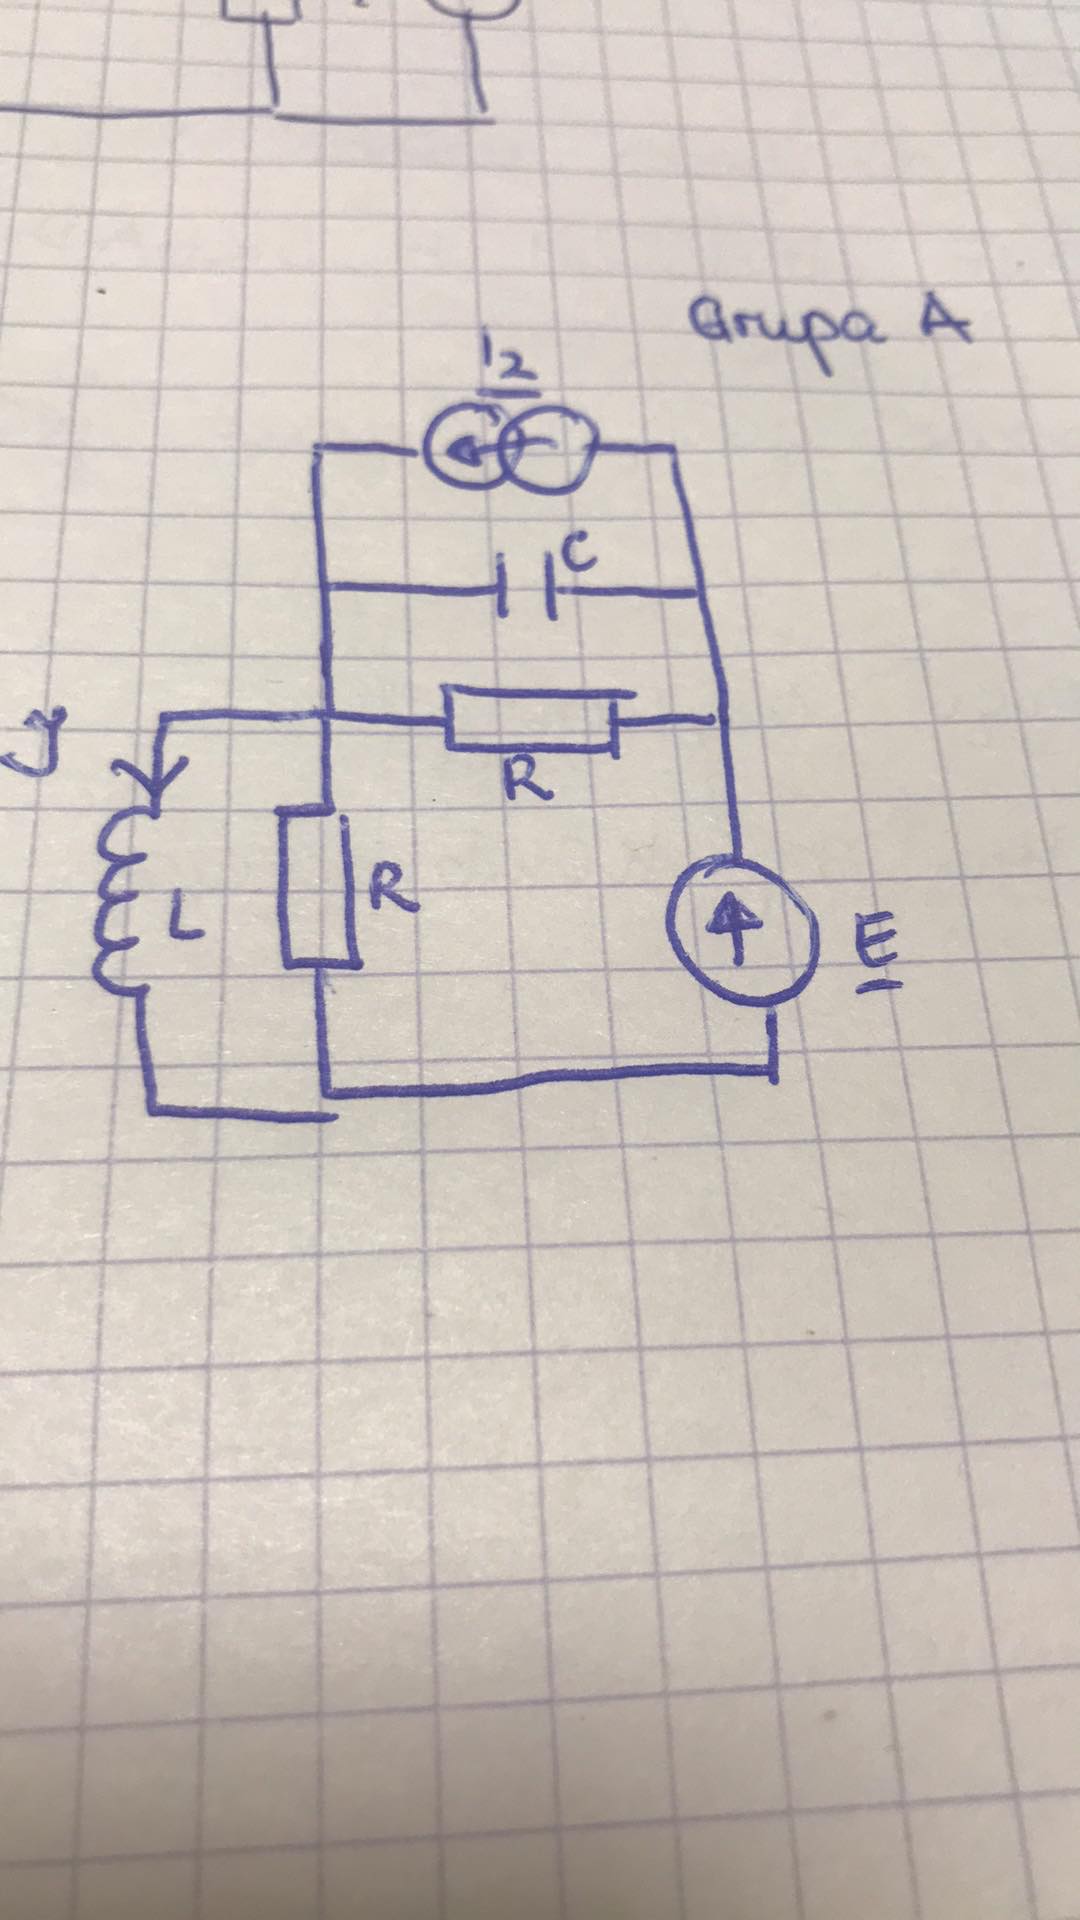 Grupa A
I2
C
R
J
L
R
E